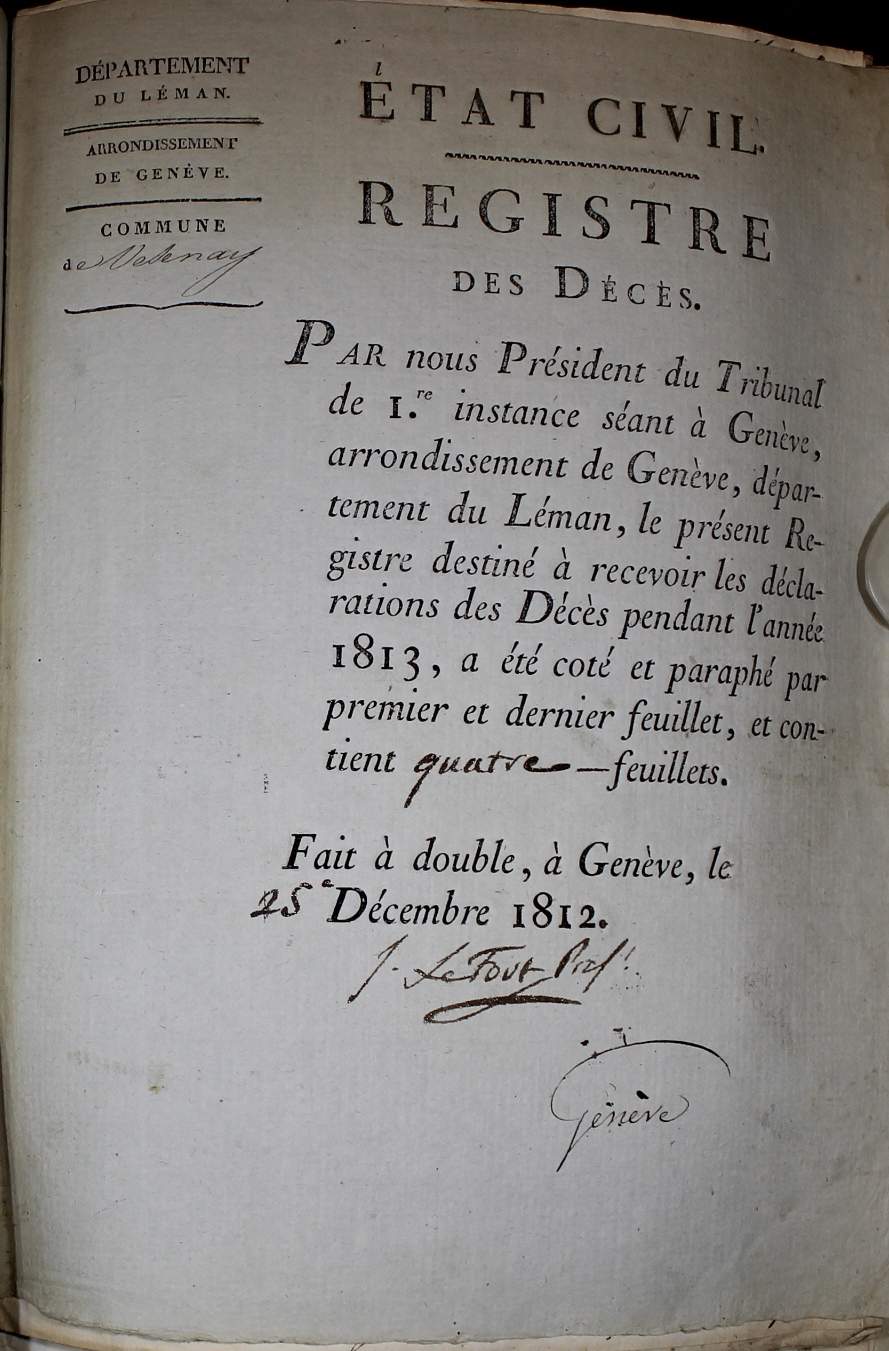 DÉPARTEMENT
DU LÉMAN.
ARRONDISSEMENT
DE GENÈVE.
COMMUNE
de Vesenay
ÉTAT CIVIL.
REGISTRE
DES DÉCÈS.
PAR nous Président du Tribunal
de 1.re instance séant à Genève,
arrondissement de Genève, dépar-
tement du Léman, le présent Re-
gistre destiné à recevoir les décla-
rations des Décès pendant l'année
1813, a été coté et paraphé par
premier et dernier feuillet, et con-
tient quatre — feuillets.
Fait à double, à Genève, le
25e Décembre 1812.
J. LeFort
Genève